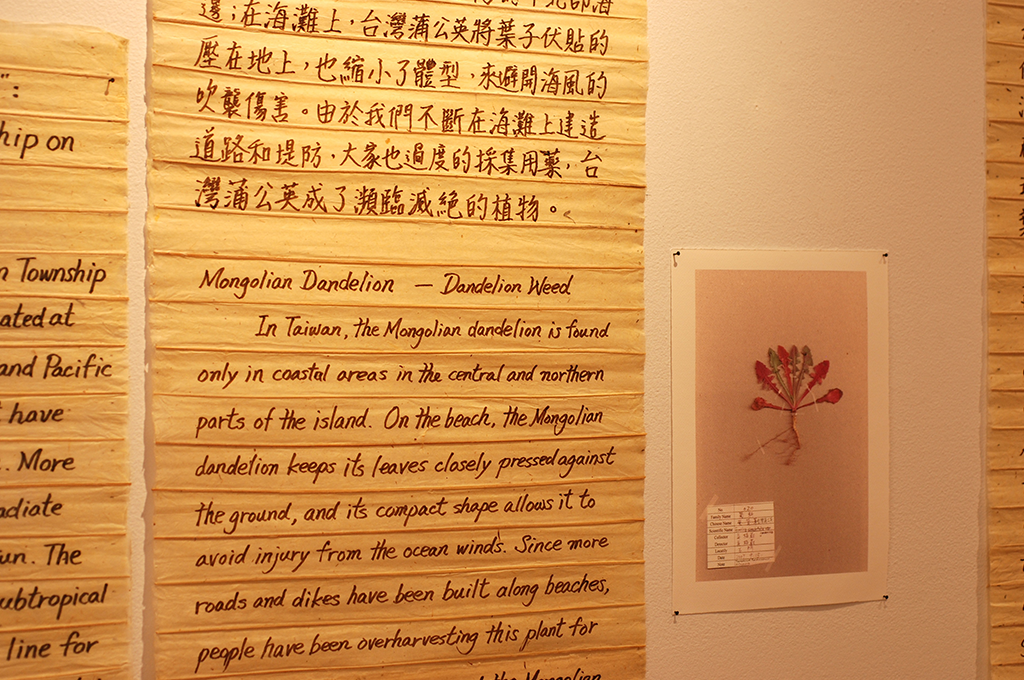 ":
hip on
n Township
ated at
and Pacific
t have
. More
adiate
un. The
ubtropical
line for
邊；在海灘上，台灣蒲公英將葉子伏貼的
壓在地上，也縮小了體型，來避開海風的
吹襲傷害。由於我們不斷在海灘上建造
道路和堤防，大家也過度的採集用藥，台
灣蒲公英成了瀕臨滅絕的植物。
Mongolian Dandelion — Dandelion Weed
In Taiwan, the Mongolian dandelion is found
only in coastal areas in the central and northern
parts of the island. On the beach, the Mongolian
dandelion keeps its leaves closely pressed against
the ground, and its compact shape allows it to
avoid injury from the ocean winds. Since more
roads and dikes have been built along beaches,
people have been overharvesting this plant for
the Mongolian
No
Family Name
Chinese Name
Scientific Name
Collector
Detector
Locality
Date
Note